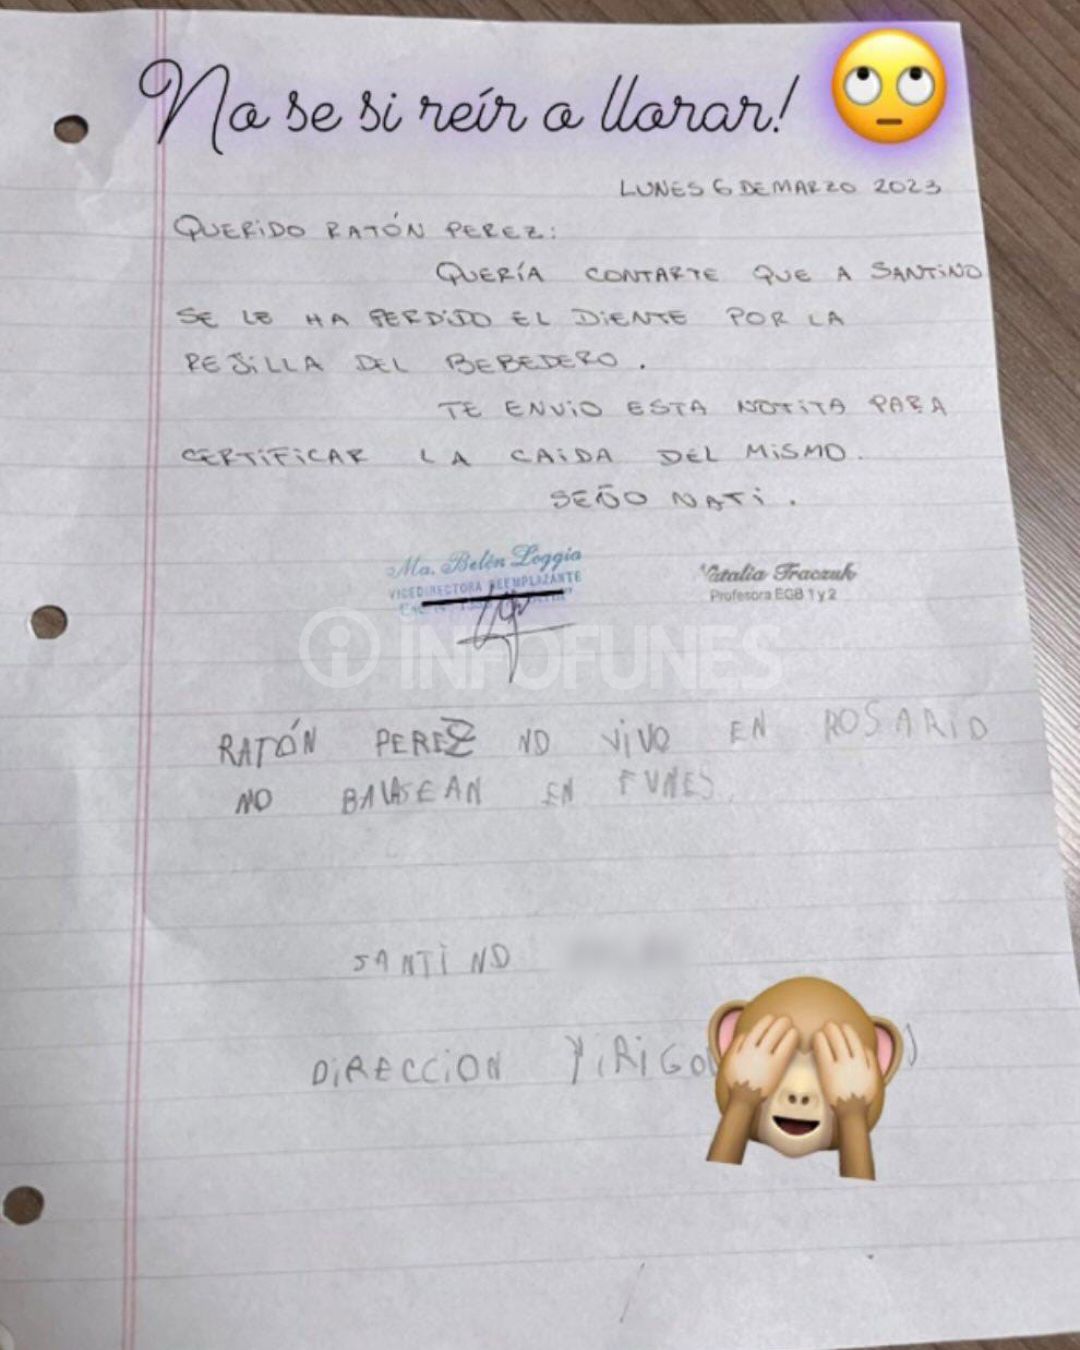 No se si reír o llorar!
LUNES 6 DE MARZO 2023
QUERIDO RATÓN PEREZ:
QUERÍA CONTARTE QUE A SANTINO
SE LE HA PERDIDO EL DIENTE POR LA
REJILLA DEL BEBEDERO.
TE ENVIO ESTA NOTITA PARA
CERTIFICAR LA CAIDA DEL MISMO.
SEÑO NATI.
Ma. Belén Loggia
VICEDIRECTORA REEMPLAZANTE
Natalia Traczuk
Profesora EGB 1 y 2
INFOFUNES
RATÓN PEREZ NO VIVO EN ROSARIO
NO BALASEAN EN FUNES
SANTINO
DIRECCION YIRIGO